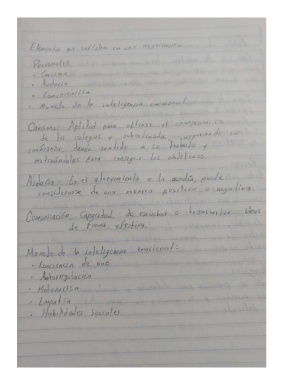 Elementos
Personales
• Carisma
• Audacia
• Comunicación
• Manejo de la inteligencia emocional
Carisma: Aptitud para obtener el compromiso
de los colegas y subordinados, inspirando
confianza, dando sentido a su trabajo y
motivándolos para conseguir los objetivos.
Audacia: Es el atrevimiento o la osadía, puede
considerarse de una manera positiva o negativa.
Comunicación: Capacidad de escuchar o transmitir ideas
de forma efectiva.
Manejo de la inteligencia emocional:
• Conciencia de uno
• Autorregulación
• Motivación
• Empatía
• Habilidades sociales